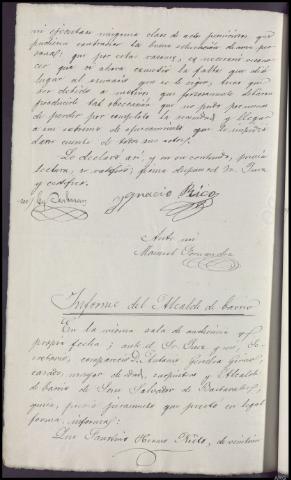 ni ejecutase ninguna clase de acto pernicioso que
pudiera contradecir la buena educación de una per-
sona; que por estas razones, es necesario recono-
cer que si ahora cometió la falta que dió
lugar al sumario que se le sigue, tuvo que
ser debido a motivos que forzosamente debieron
producirle tal obcecación que no pudo por menos
de perder por completo la serenidad y llegar
a un extremo de apasionamiento que le impidió
darse cuenta de todos sus actos.
Lo declaró así, y en su contenido, previa
lectura, se ratificó; firma despues del Sr. Juez
y certifico.
Ignacio Rico
Ante mi
Manuel Fernandez
Informe del Alcalde de barrio
En la misma sala de audiencia y
propia fecha; ante el Sr. Juez y mi Se-
cretario, compareció D. Antonio
casado, mayor de edad, carpintero y Alcalde
de barrio de San Salvador de
previo juramento que prestó en legal
forma, informa:
Que Faustino Prieto, de veintiún